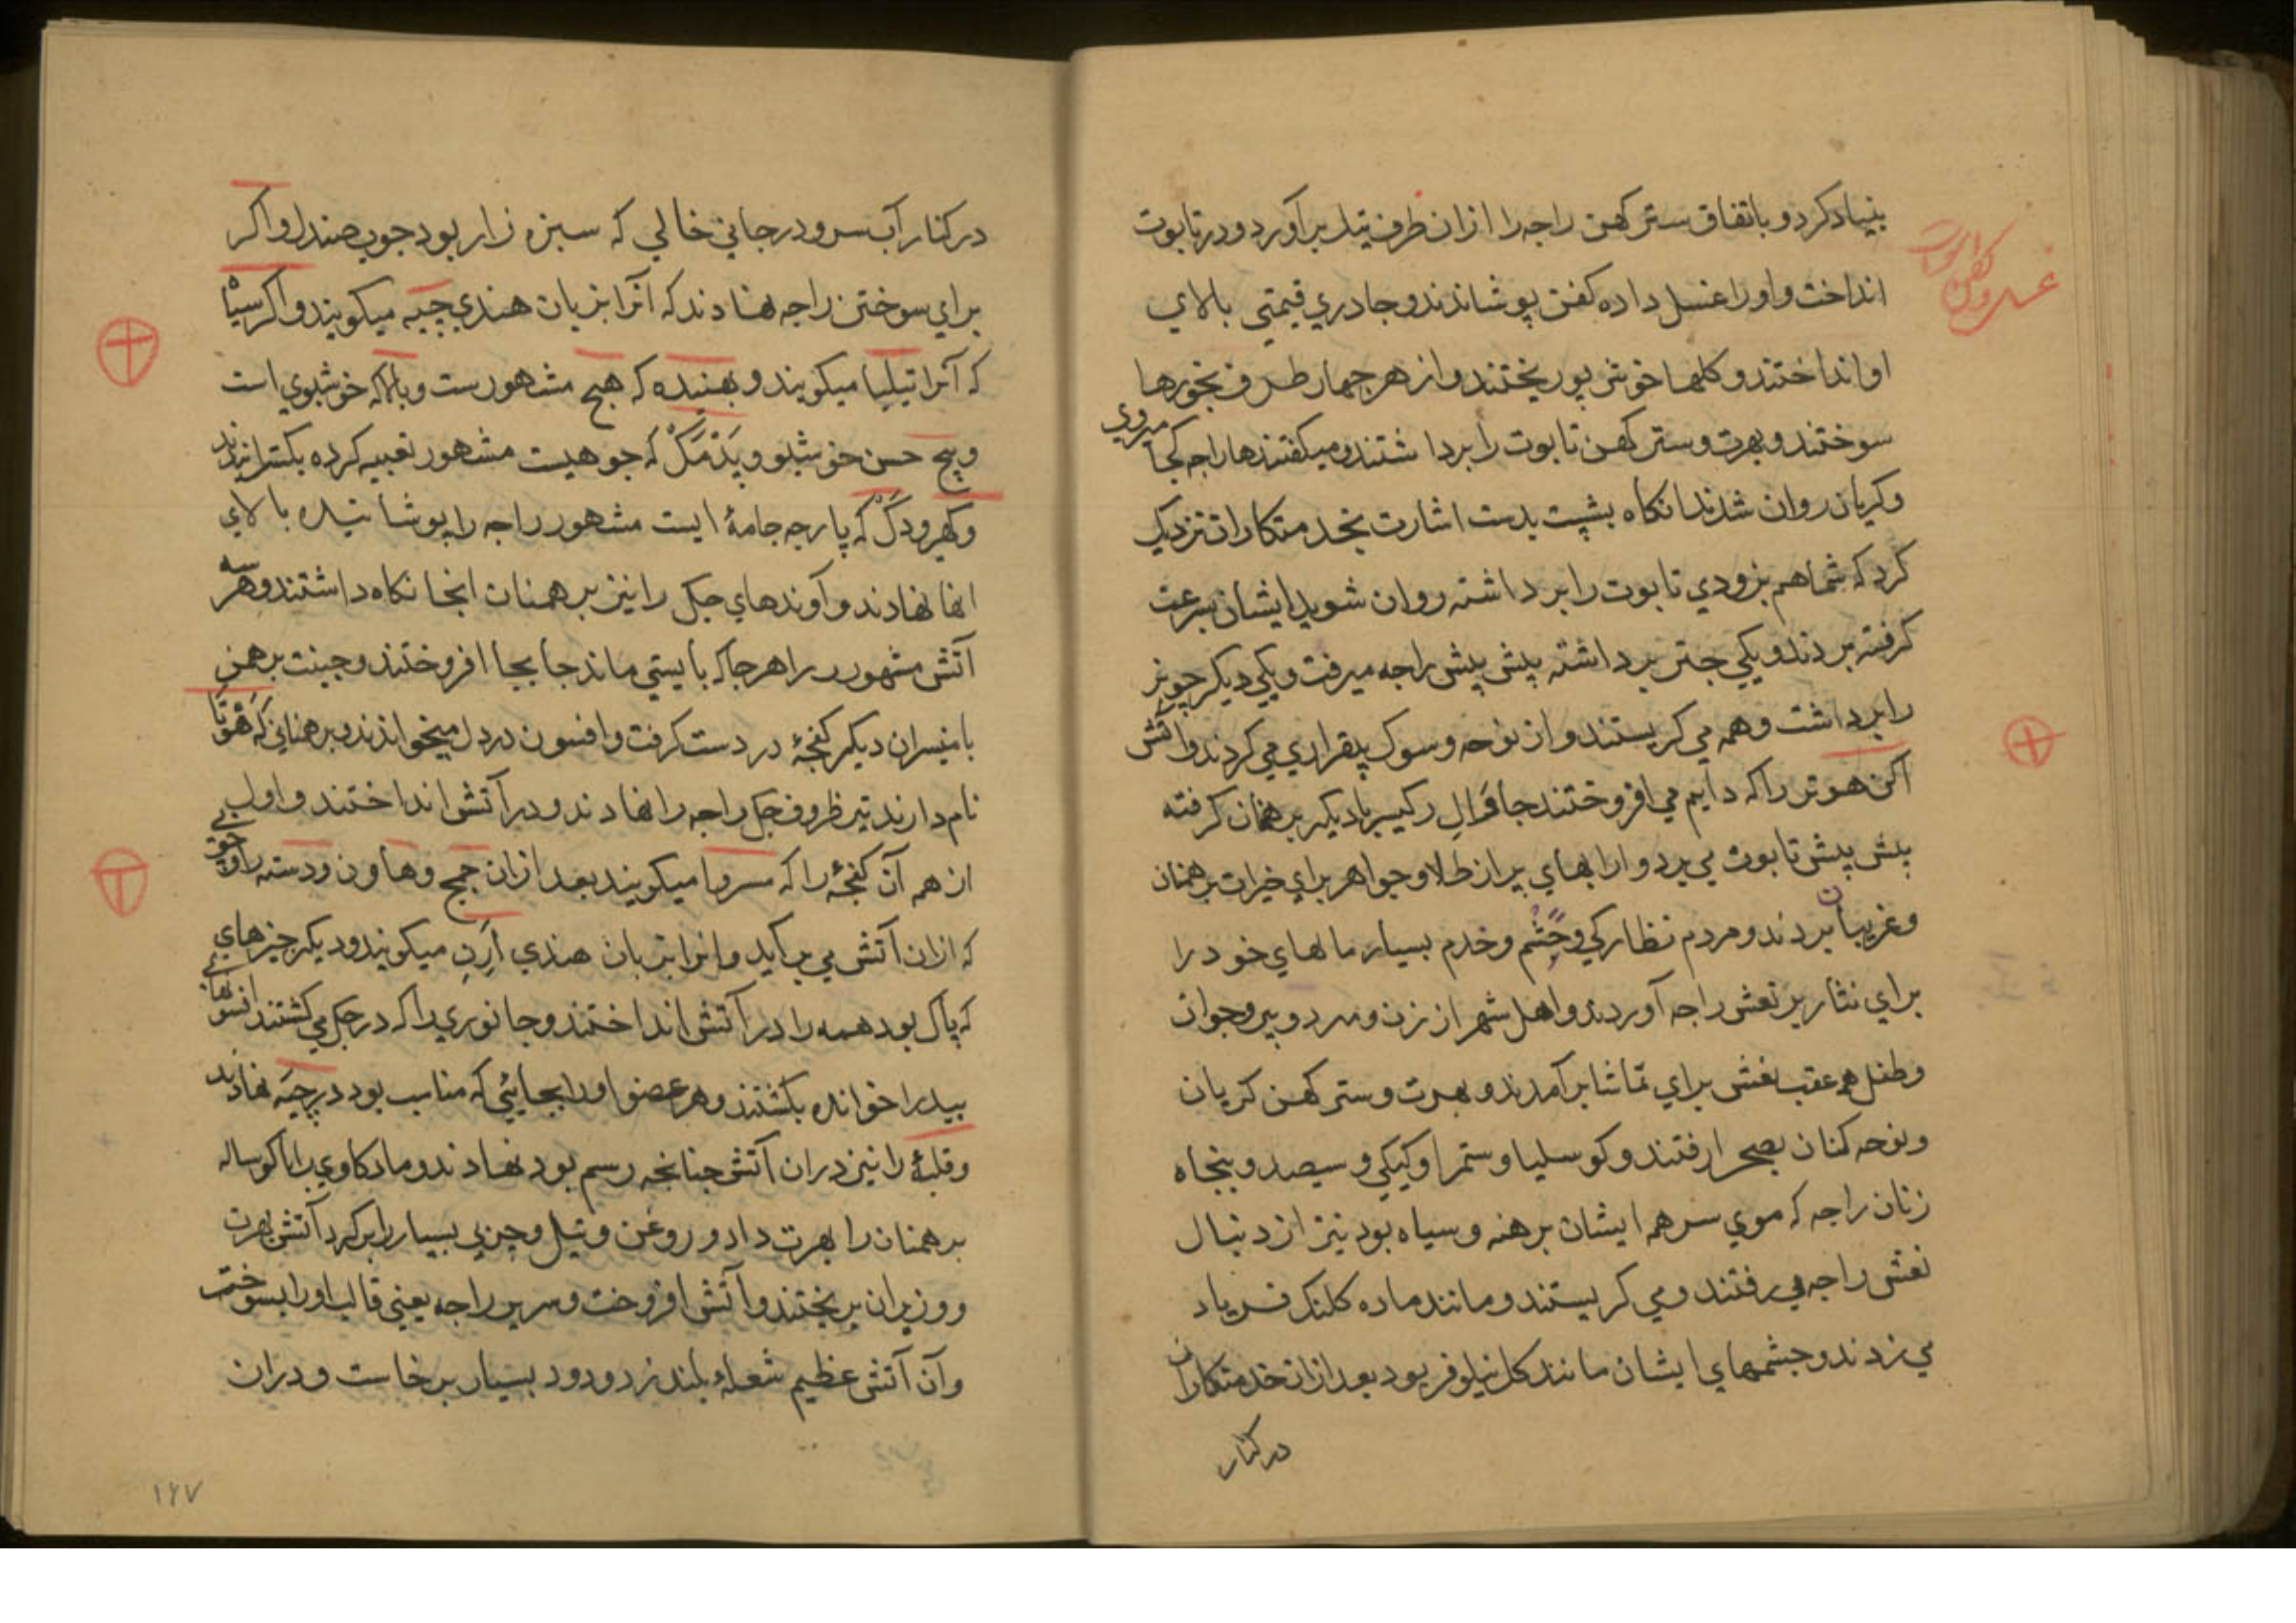 بنیاد کرد و باتفاق ستر کهن راجه را ازان ظرف تیل برآورد و در تابوت
انداخت و او را غسل داده کفن پوشاندند و جادری قیمتی بالای
او انداختند و کلها خوش بو ریختند و از هر جهار طرف بخورها
سوختند و بهرت و ستر کهن تابوت را برداشتند و میکفتند ها راجه کجا میروی
و کریان روان شدند انکاه بشپت بدست اشارت بخدمتکاران نزدیک
کرد که شما هم بزودی تابوت را برداشته روان شوید ایشان بسرعت
کرفته بردند و یکی جتر برداشته پیش پیش راجه میرفت و یکی دیکر چونر
را برداشت و همه می کریستند و از نوحه و سوک بیقراری می کردند و آتش
اکن هوتر را که دایم می افروختند جافرال رکیسر با دیکر برهمنان کرفته
پیش پیش تابوت می برد و ارابهای پر از طلا و جواهر برای خیرات برهمنان
و غریبان بردند و مردم نظارکی و حشم و خدم بسیار مالهای خود را
برای نثار بر نعش راجه آوردند و اهل شهر از زن و مرد و پیر و جوان
و طفل همه عقب نعش برای تماشا برآمدند و بهرت و ستر کهن کریان
و نوحه کنان بصحرا رفتند و کوسلیا و ستمرا و کیکی و سیصد و پنجاه
زنان راجه که موی سر همه ایشان برهنه و سیاه بود نیز از دنبال
نعش راجه می رفتند و می کریستند و مانند ماده کلنک فریاد
می زدند و جشمهای ایشان مانند کل نیلوفر بود بعد ازان خدمتکاران
در کنار
در کنار آب سرو در جائی خالی که سبزه زار بود جوب صندل و اکر
برای سوختن راجه نهادند که آنرا بزبان هندی چیه میکویند و اکر سیاه
که آنرا تیلیا میکویند و بهنیده که هیچ مشهورست و بالاکه خوشبوی است
و بیخ حسن خوشبو و پذمک که جوهیست مشهور تعبیه کرده بکسترانیدند
و کهرودک که پارچه جامهٔ ایست مشهور راجه را پوشانیده بالای
انها نهادند و آوندهای جکل را نیز برهمنان انجا نکاه داشتند و هر سه
آتش مشهور را هر جا که بایستی ماند جابجا افروختند و جینت برهمن
با پسران دیکر کفجهٔ در دست کرفت و افسون در دل میخواندند و برهمنانی که هوتا
نام دارند تیر ظروف جکل راجه را نهادند و در آتش انداختند و اول
از همه آن کفجهٔ را که سروا میکویند بعد ازان جمچ و هاون و دسته را و جوبی
که ازان آتش می برآید و انرا بزبان هندی ارن میکویند و دیکر جیزهای
که پاک بود همه را در آتش انداختند و جانوری را که در جکل می کشتند افسونهای
بید را خوانده بکشتند و هر عضو او را بجائی که مناسب بود در چیه نهادند
و قلبهٔ را نیز دران آتش جنانچه رسم بود نهادند و ماده کاوی را با کوساله
برهمنان را بهرت داد و روغن و تیل و چربی بسیار را بر کرد آتش بهرت
و وزیران بریختند و آتش افروخت و سریر راجه یعنی قالب او را بسوخت
و آن آتش عظیم شعلهٔ بلند زد و دود بسیار برخاست و دران
۱۶۷